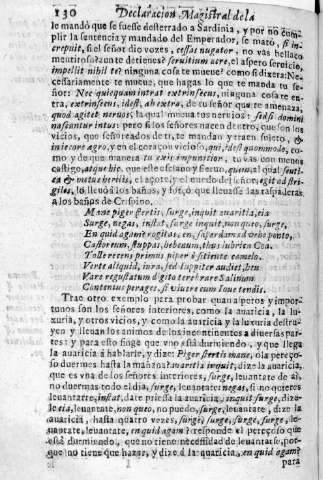 130 Declaracion Magistral de la
le mandò que se fuesse desterrado a Sardinia, y por no cum
plir la sentencia y mandado del Emperador, se matò, si in
crepuit, si el señor dio vozes, cessas nugator, no vas bellaco
mentiroso? aun te detienes? seruitium acre, el aspero seruicio,
impellit nihil te? ninguna cosa te mueue? como si dixera: Ne
cessariamente te mueue, que hagas lo que te manda tu se-
ñor: Nec quicquam intrat extrinsecus, ninguna cosa te en-
tra, extrinsecus, idest, ab extra, de tu señor que te amenaza,
quod agitet neruos, la qual mueua tus neruios: sed si domini
nascuntur intus: pero si los señores nacen dentro, que son los
vicios, que señoreados de ti te mandan y traen sujeto, &
in iecore agro, y en el coraçon vicioso, qui, idest quommodo, co-
mo y de que manera tu exis impunitior, tu vas con menos
castigo, atque hic, que este esclauo y sieruo, quem, al qual scuti
ca & metus herilis, el açote, y el miedo del señor, egit ad stri-
giles, lo lleuò a los baños, y forçò, que lleuasse las raspaderas
a los baños de Crispino.
Mane piger stertis, surge, inquit auaritia, eia
Surge, negas, instat, surge inquit, non queo, surge,
En quid agam? rogitas: en, saperdam aduehe ponto,
Castoreum, stuppas, hebenum, thus lubrica Coa.
Tolle recens primus piper è sitiente camelo.
Verte aliquid, iura, sed Iuppiter audiet, heu
Varo regustatum digito terebrare Salinum
Contentus perages, si viuere cum Ioue tendis.
Trae otro exemplo para probar quan asperos y impor-
tunos son los señores interiores, como la auaricia, la lu-
xuria, y otros vicios, y como la auaricia y la luxuria destru-
yen y lleuan los animos de los incontinentes a diuersas par-
tes: y para esto finge que vno està durmiendo, y que llega
la auaricia à hablarle, y dize: Piger stertis mane, ola pereço-
so duermes hasta la mañana? auaritia inquit, dize la auaricia,
que es vna de los señores interiores, surge, leuantate de aì,
no duermas todo el dia, surge, leuantate: negas, si no quieres
leuantarte, instat, date priessa la auaricia, inquit surge, dize-
le eia, leuantate, non queo, no puedo, surge, leuantate, dize la
auaricia, hasta quatro vezes, surge, surge, surge, surge, leuan-
tate, leuantate, en quid agam? responde el pereçoso que
està durmiendo, que no tiene necessidad de leuantarse, por-
que no tiene que hazer, y dize à la auaricia, en quid agam?
para